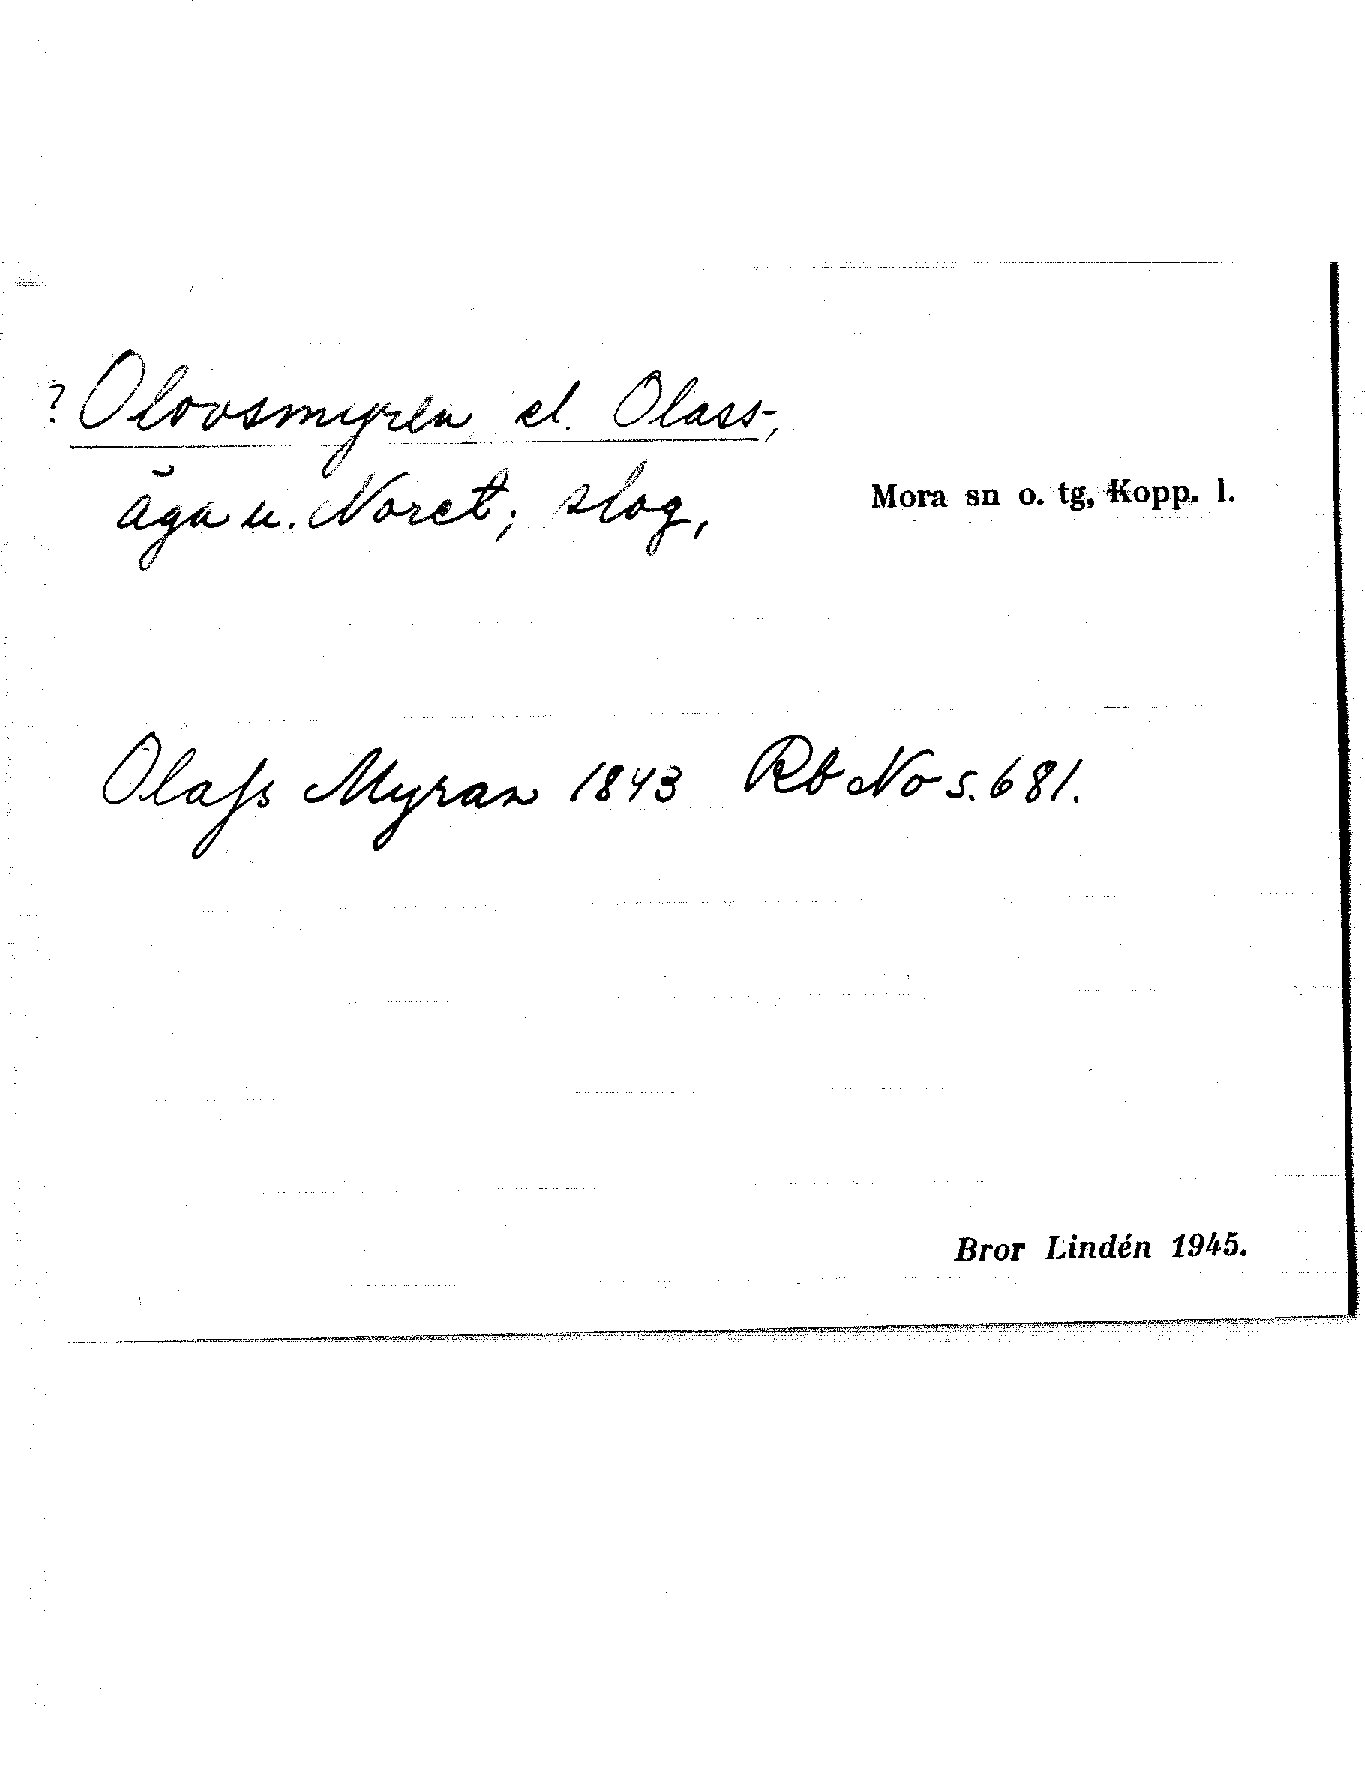 ? Olovsmyren el. Olass-,
äga u. Noret; slog,
Mora sn o. tg, Kopp. l.
Olafs Myran 1843 Rb No s. 681.
Bror Lindén 1945.